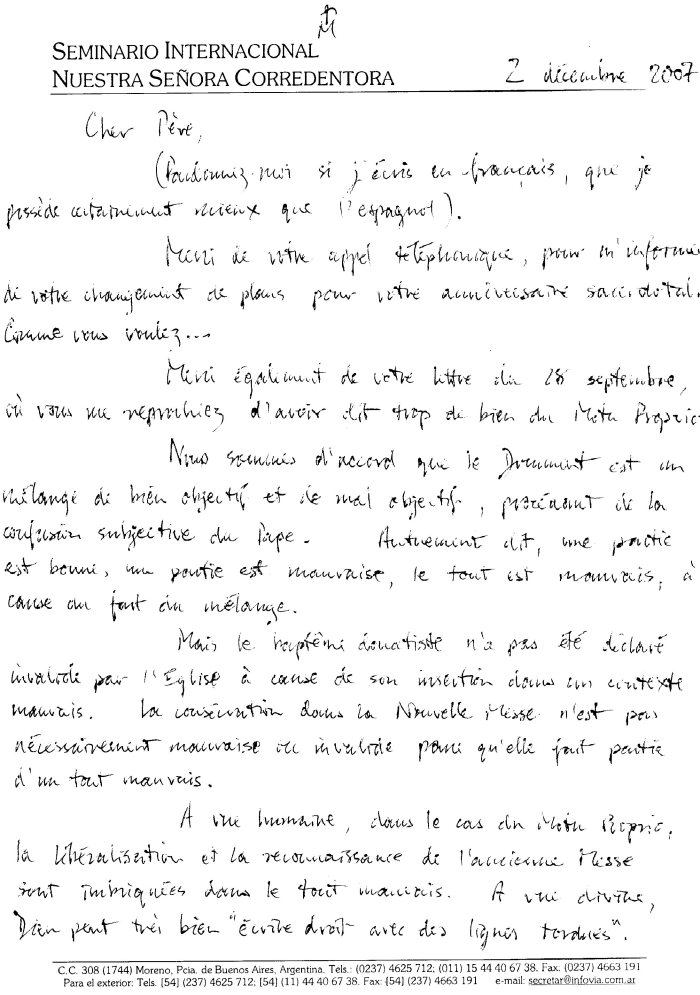 SEMINARIO INTERNACIONAL
NUESTRA SEÑORA CORREDENTORA
2 décembre 2007
Cher Père,
(Pardonnez-moi si j'écris en français, que je
possède certainement mieux que l'espagnol).
Merci de votre appel téléphonique, pour m'informer
de votre changement de plans pour votre anniversaire sacerdotal.
Comme vous voulez...
Merci également de votre lettre du 28 septembre,
où vous me reprochiez d'avoir dit trop de bien du Motu Proprio
Nous sommes d'accord que le Document est un
mélange de bien objectif et de mal objectif, provenant de la
confusion subjective du Pape. Autrement dit, une partie
est bonne, une partie est mauvaise, le tout est mauvais, à
cause du fait du mélange.
Mais le baptême donatiste n'a pas été déclaré
invalide par l'Eglise à cause de son insertion dans un contexte
mauvais. La consécration dans la Nouvelle Messe n'est pas
nécessairement mauvaise ou invalide parce qu'elle fait partie
d'un tout mauvais.
A vue humaine, dans le cas du Motu Proprio,
la libéralisation et la reconnaissance de l'ancienne Messe
sont imbriquées dans le tout mauvais. A vue divine,
Dieu peut très bien "écrire droit avec des lignes tordues".
C.C. 308 (1744) Moreno, Pcia. de Buenos Aires, Argentina. Tels.: (0237) 4625 712; (011) 15 44 40 67 38. Fax. (0237) 4663 191
Para el exterior: Tels. [54] (237) 4625 712; [54] (11) 44 40 67 38. Fax: [54] (237) 4663 191 e-mail: secretar@infovia.com.ar